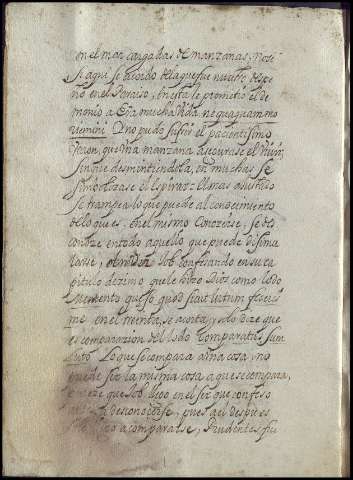 en el mar cargadas de manzanas, No se
si aqui se acordo de la que fue nuestro despe
ño en el Paraiso, en esta se prometio el de
monio a Eva mucha Vida, nequaquam mo
riemini
No pudo sufrir el pacientissimo
Varon, que una manzana asegurase el vivir,
sin que desmintiendola, en muchas se
simbolizase el espirar: el mas advertido
se trampea lo que puede al conocimiento
de lo que es. en el mismo Conozese, se des
conoze en todo aquello que puede disimu
larse, Job confesando en su ca
pitulo dezimo que le hizo Dios como lodo
Memento quæso quod sicut lutum feceris
me, en el treinta, se acorta, y solo dize que
es comparazion del lodo Comparatus sum
luto. Lo que se compara a una cosa, no
puede ser la misma cosa a que se compara,
que Job llego en el ser que confeso
a desconocerse, pues a el despues
a compararse, Prudentes fue